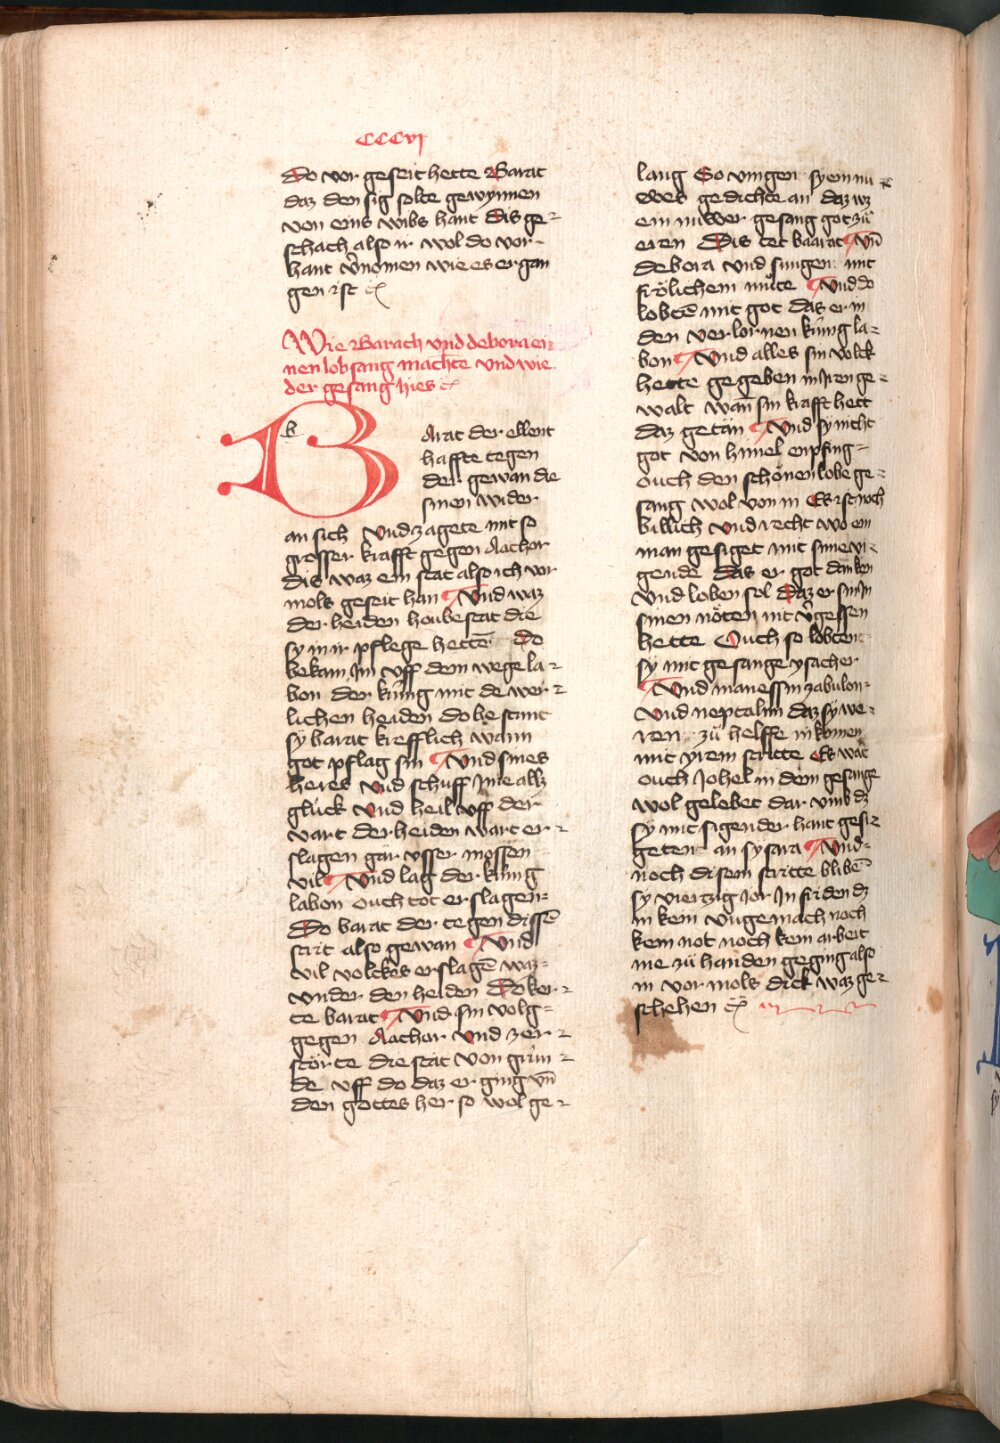 CCCvj
Do vor geseit hette Barat
daz den sig solte gewynnen
von eins wibs hant Dis ge⸗
schach also ir wol do vor⸗
hant v̾nomen wie es er gan
gen ist
Wie Barach vnd debora ei⸗
nen lob sang machte vnd wie
der gesang hies
b
BArat der ellent
haffte tegen
der gewan die
sinen wider
an sich vnd zagete mit so
grosser krafft gegen Aachor
dis waz ein stat also ich vor
mols geseit han Vnd waz
der heiden houbestat die
sy in ir pflege hettē do
bekam Im vff dem wege la⸗
bon der kúnig mit de wer⸗
lichen heiden do bestunt
sy barat krefflich wann
got pflag sin Vnd sines
heres vnd schuff Ime alls
glück vnd heil vff der
vart der heiden wart er⸗
slagen gar vsser mossen
vil Vnd lag der kúnig
labon ouch tot er slagen⸗
Do barat der tegen dissē
strit also gewan Vnd
vil volckes erslagē waz⸗
vnder den heiden Do ker⸗
te barat Vnd sin volg⸗
gegen Aachor vnd zer⸗
störte die stat von grún⸗
de vff do daz er ging vn̄
den gottes her so wol ge⸗
lang So vingen sy ein nu⸗
wes gedichte an daz wz
ein nuwer gesang got zů
eren Dis tet baarat Vn̄
debora vnd sungen mit
frölichem můte Vnd do
lobtē mit got das er in
den verlornen kúnig la⸗
bon Vnd alles sin volck
hette gegeben in Iren ge⸗
walt wan̄ sin krafft hett
daz getän Vnd sy nicht
got von himel enpfing⸗
ouch den schönen lobe ge⸗
sang wol von in Es ist noch
billich vnd recht wo ein
man gesiget mit sime vi⸗
gende das er got dancken
vnd loben sol Daz er sin In
sinen nöten nit v̾gessen
hette Ouch so lobten
sy mit gesange ysacher
Vnd manessin zabulon⸗
Vnd neptalim daz sy we⸗
ren zů helffe in komen
mit yrem stritte Es wart
ouch Johel in dem gesange
wol gelebet dar vmb dz
sy mit sigender hant gesi⸗
geten an sysara Vnd⸗
noch disem stritte blibē
sy vierzig Jor In friden dz
in kein vngemach noch
kein not noch kein arbeit
nie zů handen geging also
in vor mols dick waz ge⸗
schehen